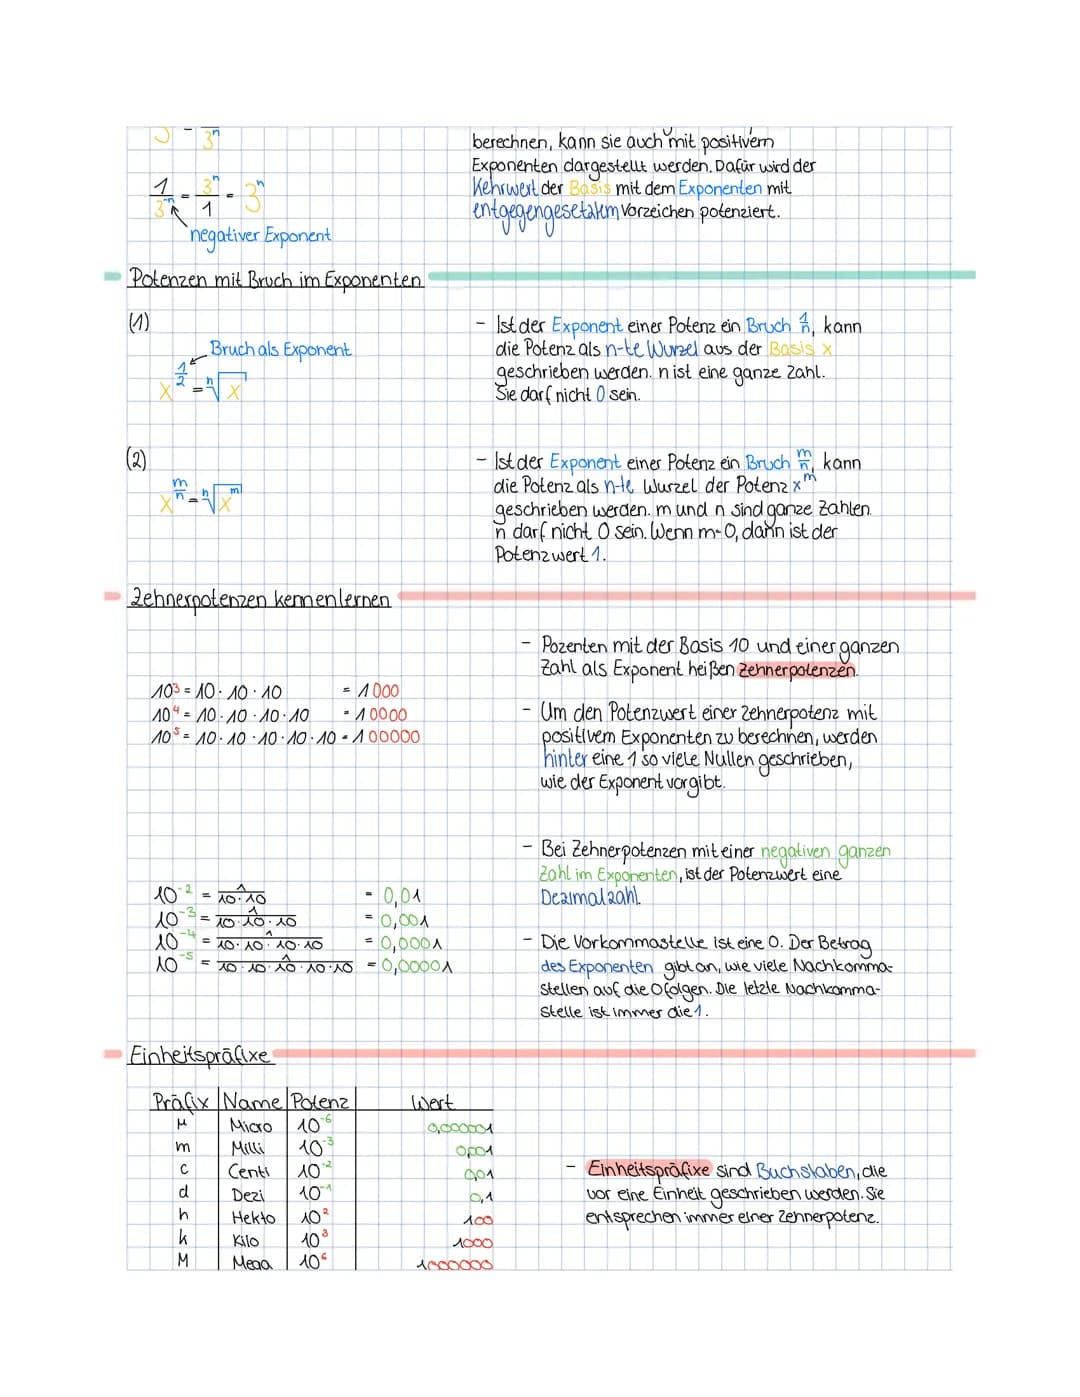 3ⁿ
berechnen, kann sie auch mit positivem
Exponenten dargestellt werden. Dafür wird der
Kehrwert der Basis mit dem Exponenten mit
entgegengesetztem Vorzeichen potenziert.
1/3⁻ⁿ = 3ⁿ/1 = 3ⁿ
negativer Exponent
Potenzen mit Bruch im Exponenten
(1)
Bruch als Exponent
x^(1/2) = ⁿ√x
- Ist der Exponent einer Potenz ein Bruch 1/n, kann
die Potenz als n-te Wurzel aus der Basis x
geschrieben werden. n ist eine ganze Zahl.
Sie darf nicht 0 sein.
(2)
x^(m/n) = ⁿ√x^m
- Ist der Exponent einer Potenz ein Bruch m/n, kann
die Potenz als n-te Wurzel der Potenz x^m
geschrieben werden. m und n sind ganze Zahlen.
n darf nicht 0 sein. Wenn m=0, dann ist der
Potenzwert 1.
Zehnerpotenzen kennenlernen
- Pozenten mit der Basis 10 und einer ganzen
Zahl als Exponent heißen Zehnerpotenzen.
10³ = 10 · 10 · 10 = 1000
10⁴ = 10 · 10 · 10 · 10 = 10000
10⁵ = 10 · 10 · 10 · 10 · 10 = 100000
- Um den Potenzwert einer Zehnerpotenz mit
positivem Exponenten zu berechnen, werden
hinter eine 1 so viele Nullen geschrieben,
wie der Exponent vorgibt.
- Bei Zehnerpotenzen mit einer negativen ganzen
Zahl im Exponenten, ist der Potenzwert eine
Dezimalzahl.
10⁻² = 1/10·10 = 0,01
10⁻³ = 1/10·10·10 = 0,001
10⁻⁴ = 1/10·10·10·10 = 0,0001
10⁻⁵ = 1/10·10·10·10·10 = 0,00001
- Die Vorkommastelle ist eine 0. Der Betrag
des Exponenten gibt an, wie viele Nachkomma-
stellen auf die 0 folgen. Die letzte Nachkomma-
stelle ist immer die 1.
Einheitspräfixe
Präfix Name Potenz Wert
μ Micro 10⁻⁶ 0,000001
m Milli 10⁻³ 0,001
c Centi 10⁻² 0,01
d Dezi 10⁻¹ 0,1
h Hekto 10² 100
k Kilo 10³ 1000
M Mega 10⁶ 1000000
- Einheitspräfixe sind Buchstaben, die
vor eine Einheit geschrieben werden. Sie
entsprechen immer einer Zehnerpotenz.